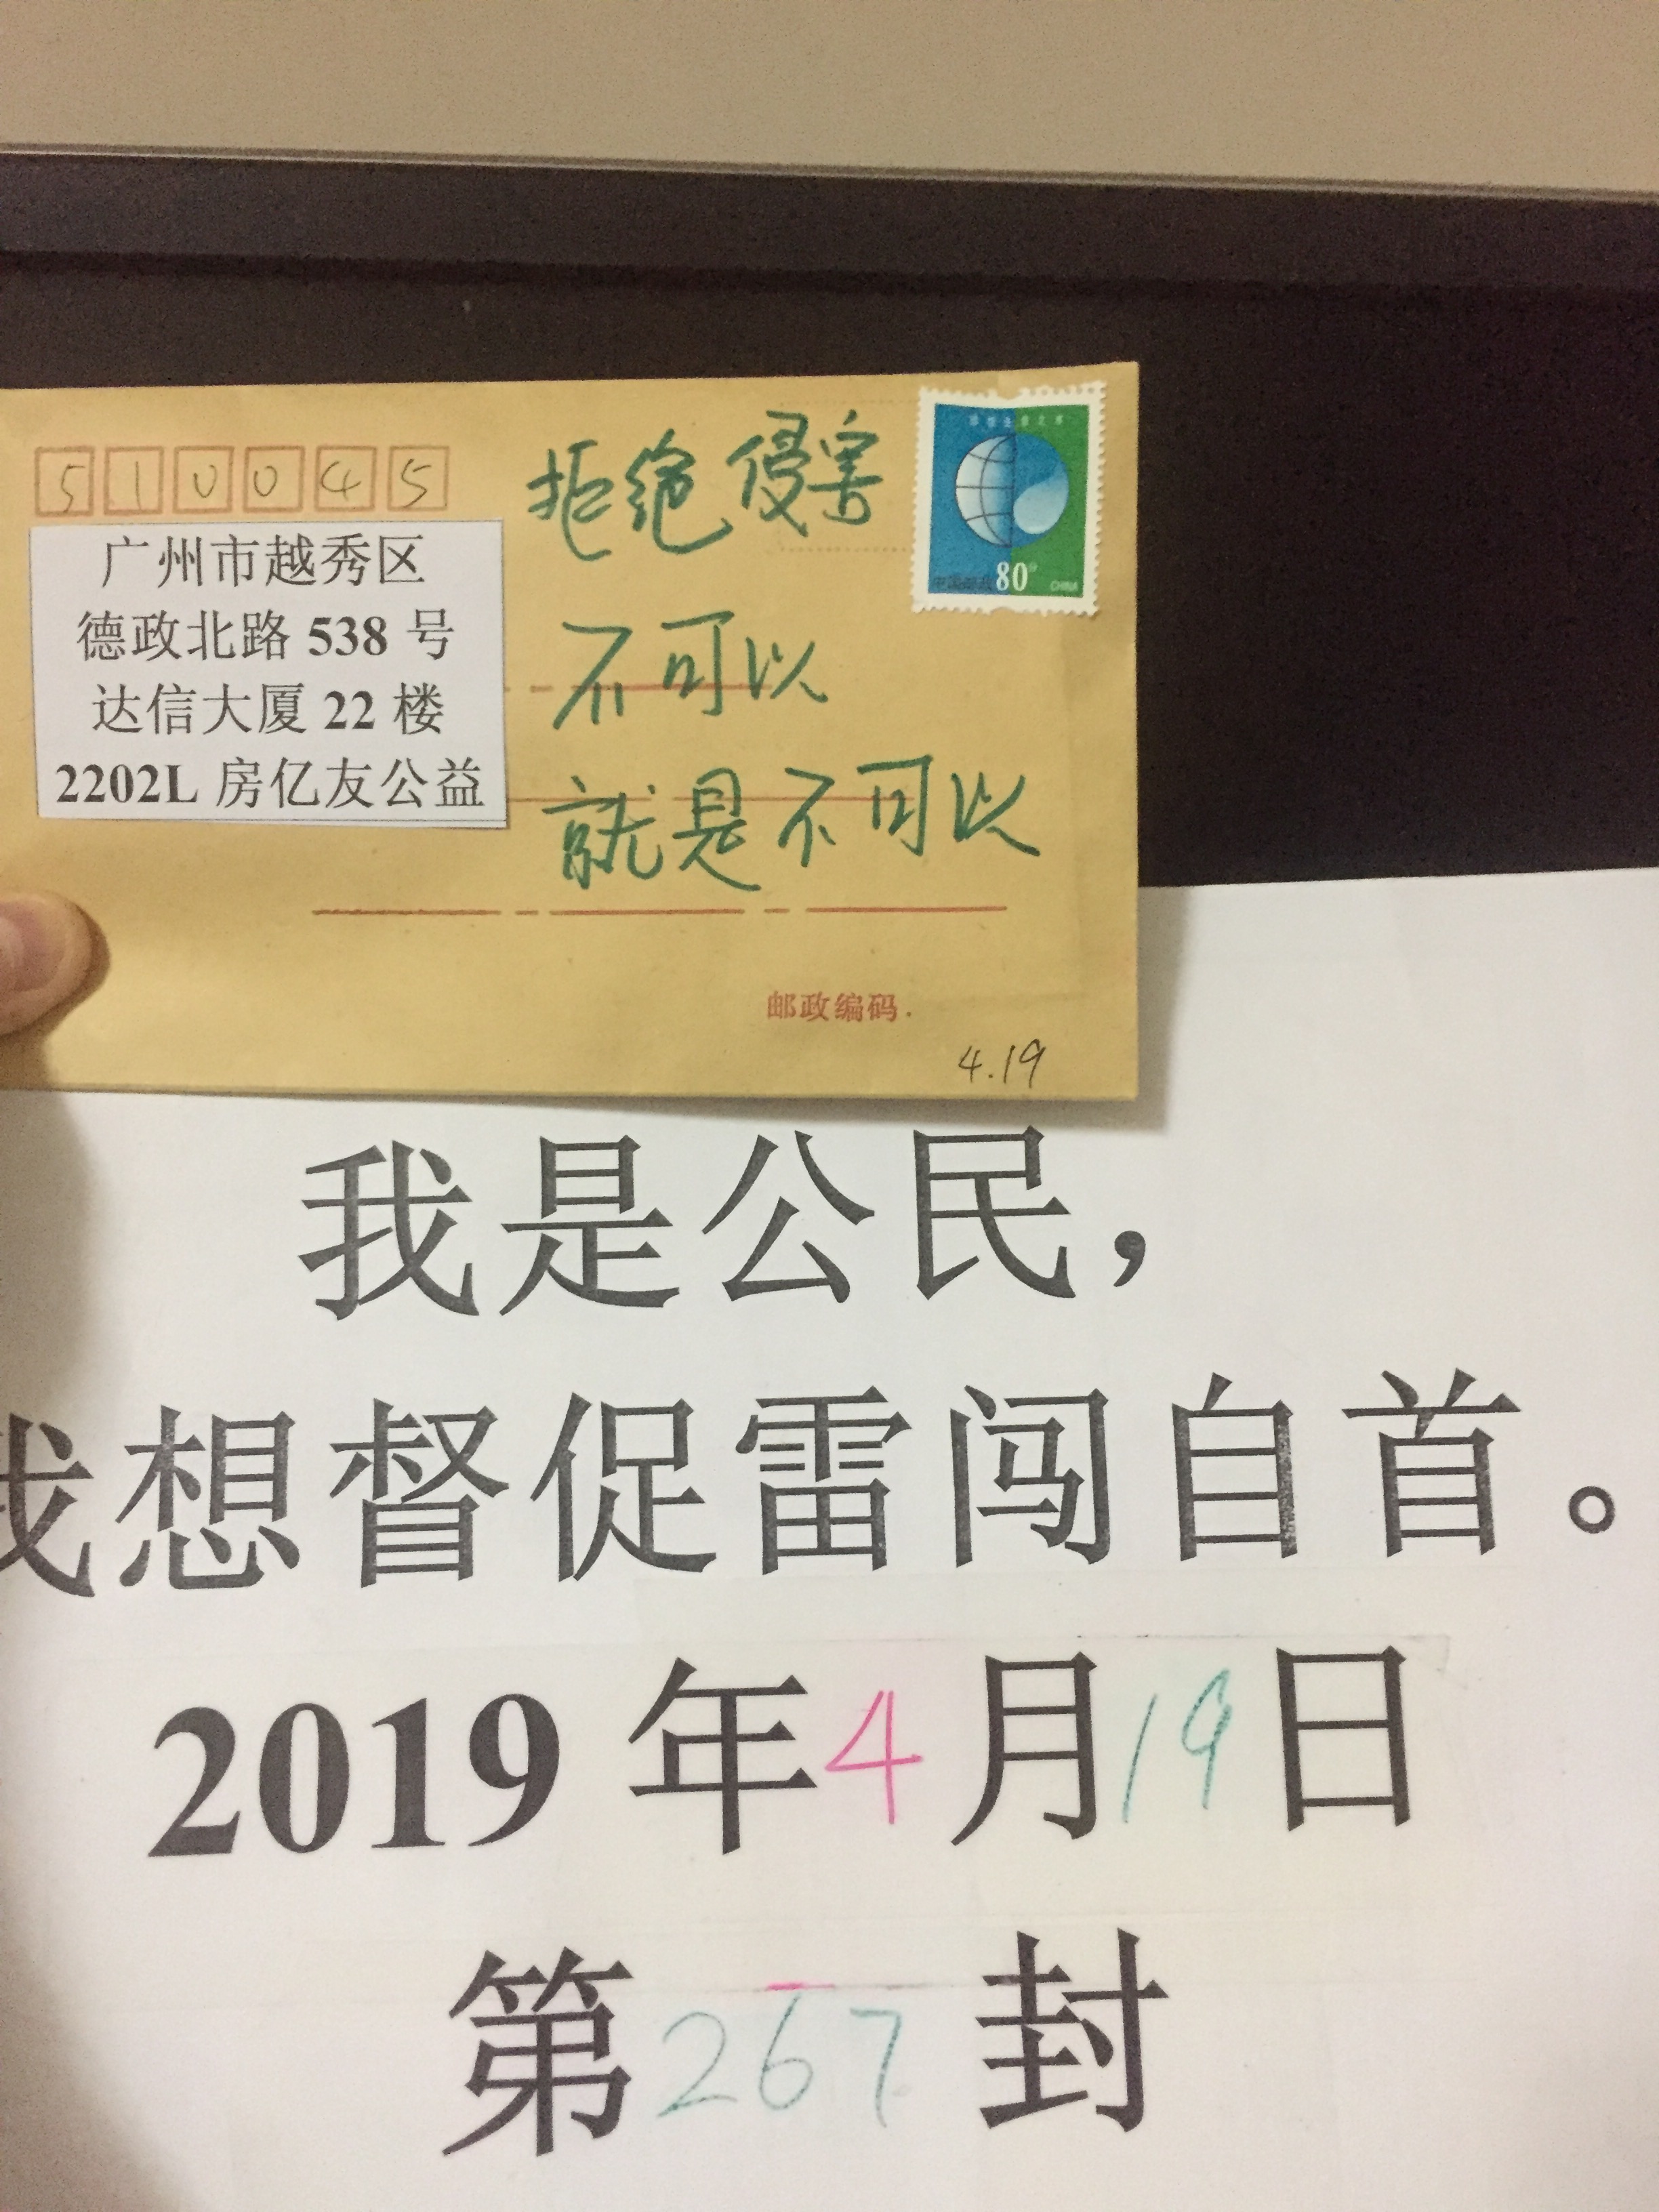 510045
广州市越秀区
德政北路 538 号
达信大厦 22 楼
2202L 房亿友公益
拒绝侵害
不可以
就是不可以
中国邮政 80分 CHINA
邮政编码.
4.19
我是公民，
我想督促雷闯自首。
2019 年 4 月 19 日
第 267 封